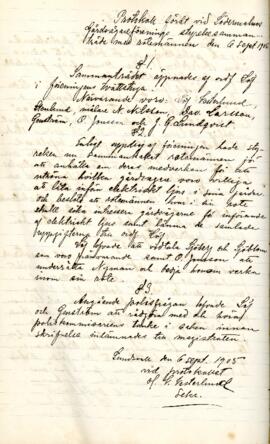 Protokoll fördt vid Södermalms
Gårdsägareförenings styrelsesamman-
träde med rotemännen den 6 sept 1905
§ 1.
Sammanträdet öppnades af ordf Löf
i föreningens
Närvarande voro: Löf Vesterlund,
Stenlund, målare N. Nilsson, Lars Larsson,
Genström, O. Jonsson och J. G. Lundqvist
§ 2
Enligt uppdrag af föreningen hade sty-
relsen nu sammankallat rotemännen för
att anhålla om deras medverkan för att
utröna hvilka gårdsägare voro villiga
att låta införa elektriskt ljus i sina gårdar
och beslöts att rotemännen hvar i sin rote
skulle söka intressera gårdsägarne för införande
af elektriskt ljus samt lämna de samlade
uppgifterna till ordf Löf.
Löf lofvade att vidtala Sjöberg och Sjöblom
som voro frånvarande samt O. Jonsson att
underrätta Nyman och bedja honom verka
inom sin rote
§ 3
Angående polisfrågan lofvade Löf
och Genström att rådgöra med hr
poliskommissariens tanke i saken innan
skrifvelse inlämnades till magistraten
Sundsvall den 6 sept. 1905
vid protokollet
G. Vesterlund
Sekr.